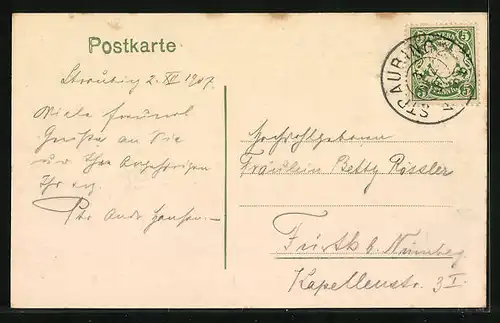 Postkarte
Straubing 2. XII 1907.
Viele freundl.
Grüße an Sie
u. Ihre Angehörigen
Ihr erg.
Hochwohlgeboren
Fräulein Betty Rössler
Fürth b. Nürnberg
Kapellenstr. 3 I.
STRAUBING
BAYERN
5 5
5 PFENNIG 5